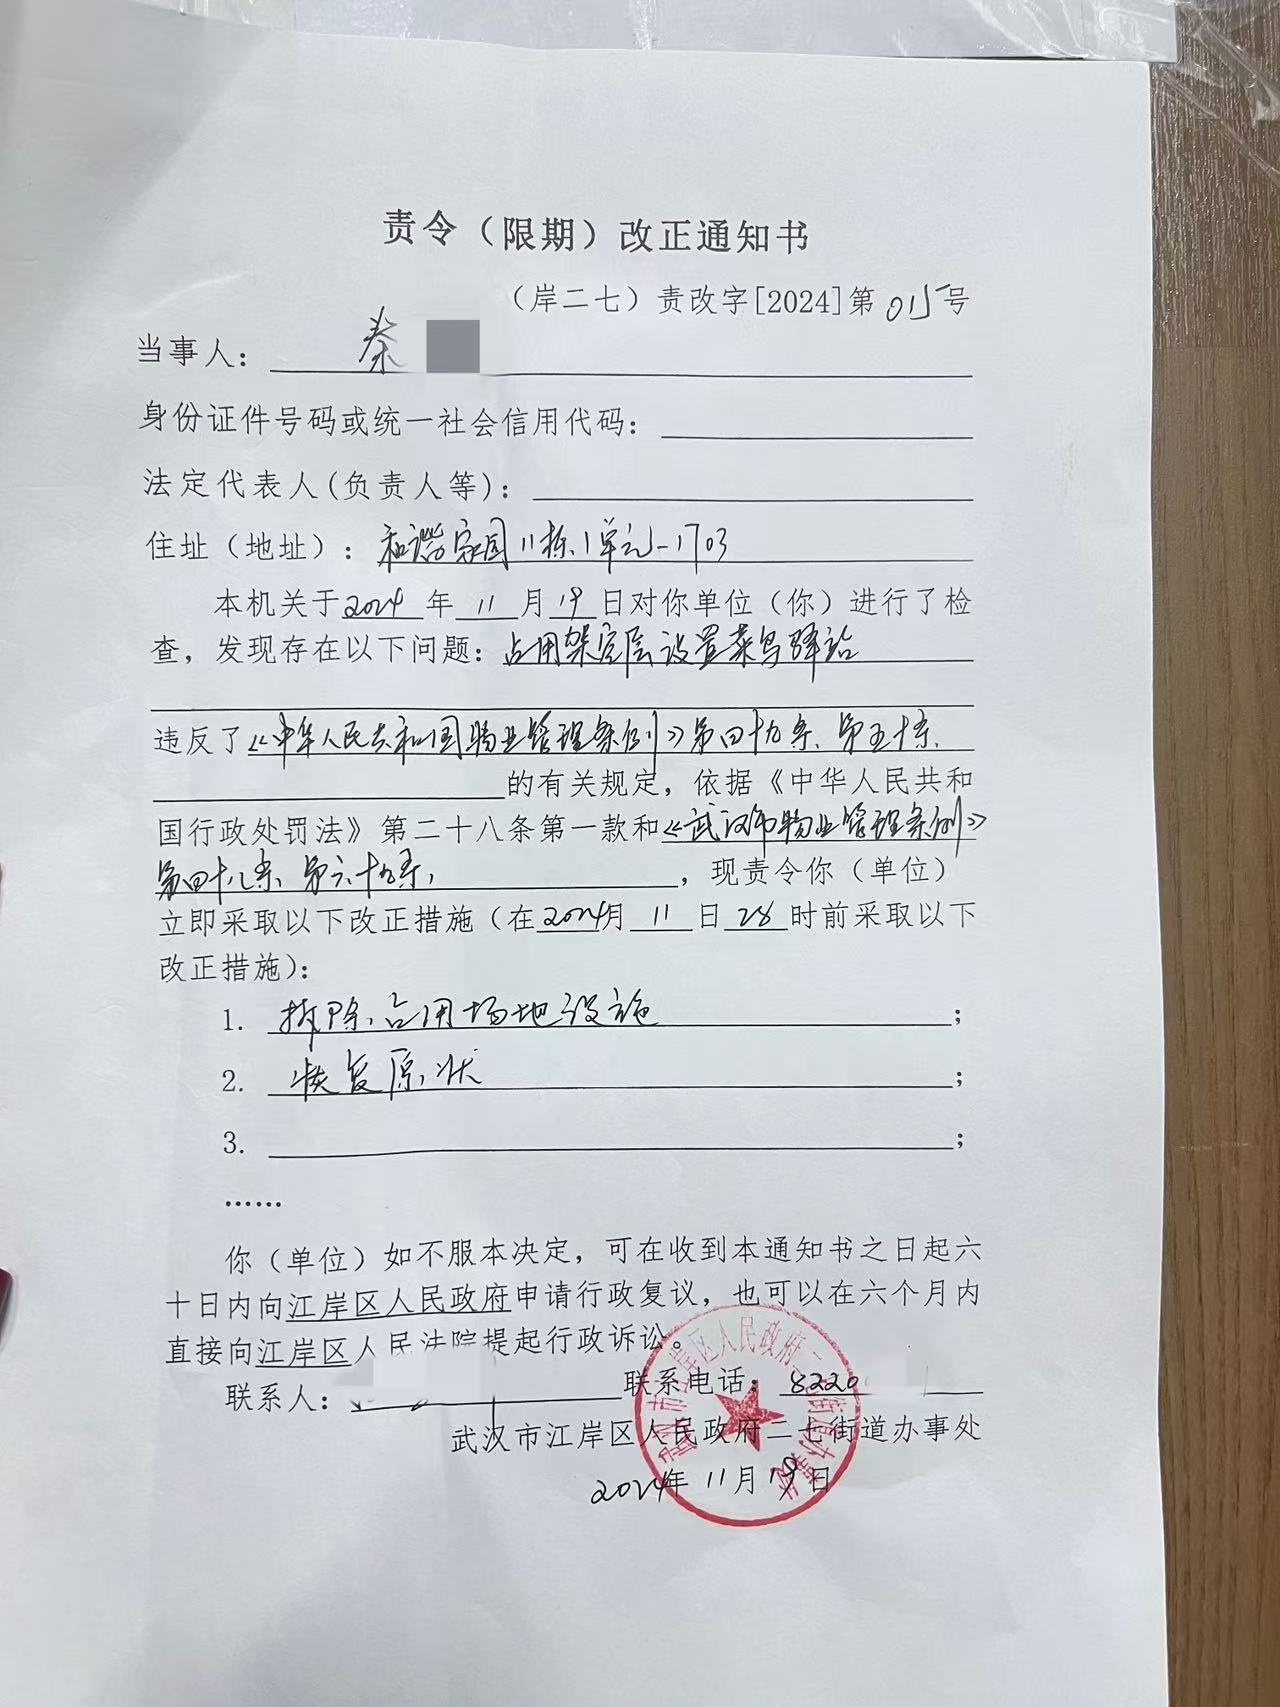 责令（限期）改正通知书
（岸二七）责改字[2024]第015号
当事人：秦
身份证件号码或统一社会信用代码：
法定代表人(负责人等)：
住址（地址）：和谐家园11栋1单元-1703
本机关于2024年11月19日对你单位（你）进行了检
查，发现存在以下问题：占用架空层设置菜鸟驿站
违反了《中华人民共和国物业管理条例》第四十九条、第五十条、
的有关规定，依据《中华人民共和
国行政处罚法》第二十八条第一款和《武汉市物业管理条例》
第四十八条、第六十九条，，现责令你（单位）
立即采取以下改正措施（在2024月11日28时前采取以下
改正措施)：
1. 拆除占用场地设施；
2. 恢复原状；
3. ；
……
你（单位）如不服本决定，可在收到本通知书之日起六
十日内向江岸区人民政府申请行政复议，也可以在六个月内
直接向江岸区人民法院提起行政诉讼。
联系人： 联系电话：8220
武汉市江岸区人民政府二七街道办事处
2024年11月19日
武汉市江岸区人民政府二七街道办事处